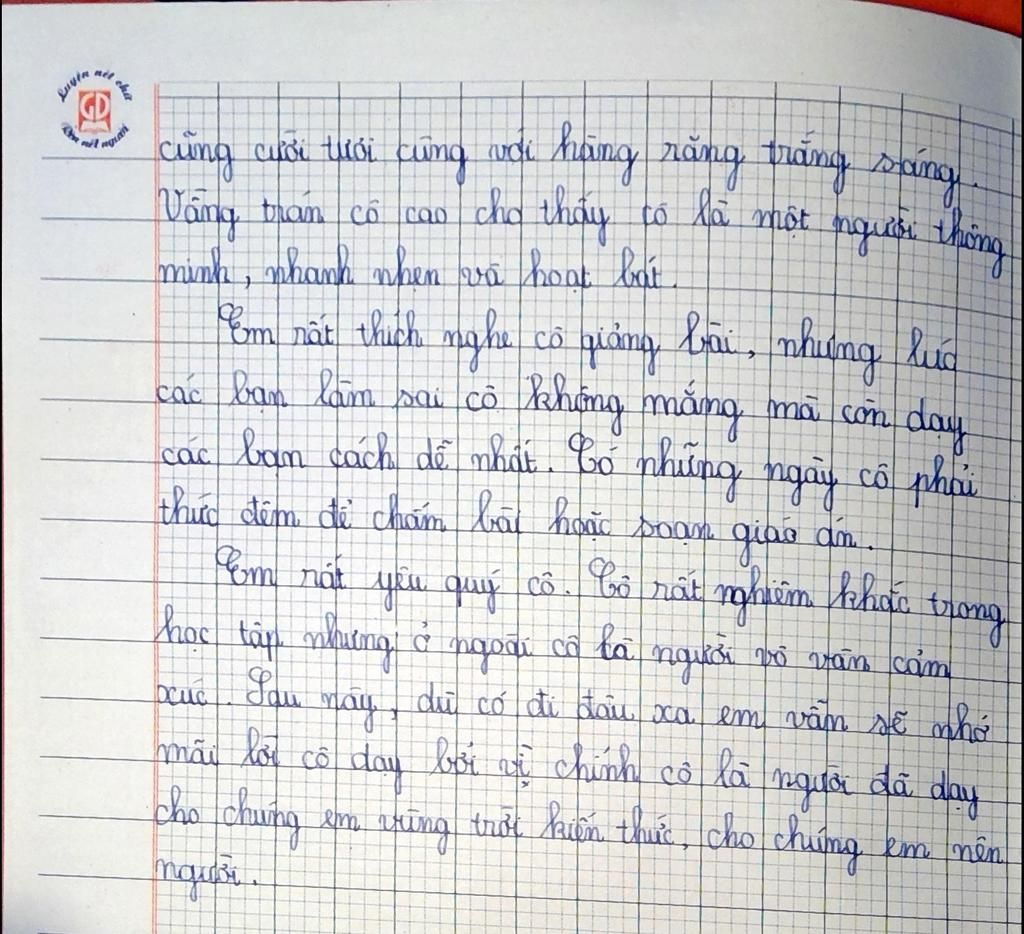 Luyện nét chữ
GD
Rèn nết người
cũng cười tươi cùng với hàng răng trắng sáng.
Vầng trán cô cao cho thấy cô là một người thông
minh, nhanh nhẹn và hoạt bát.
Em rất thích nghe cô giảng bài, nhưng lúc
các bạn làm sai cô không mắng mà còn dạy
các bạn cách dễ nhất. Có những ngày cô phải
thức đêm để chấm bài hoặc soạn giáo án.
Em rất yêu quý cô. Cô rất nghiêm khắc trong
học tập nhưng ở ngoài cô là người vô vàn cảm
xúc. Sau này, dù có đi đâu xa em vẫn sẽ nhớ
mãi lời cô dạy bởi vì chính cô là người đã dạy
cho chúng em vùng trời kiến thức, cho chúng em nên
người.